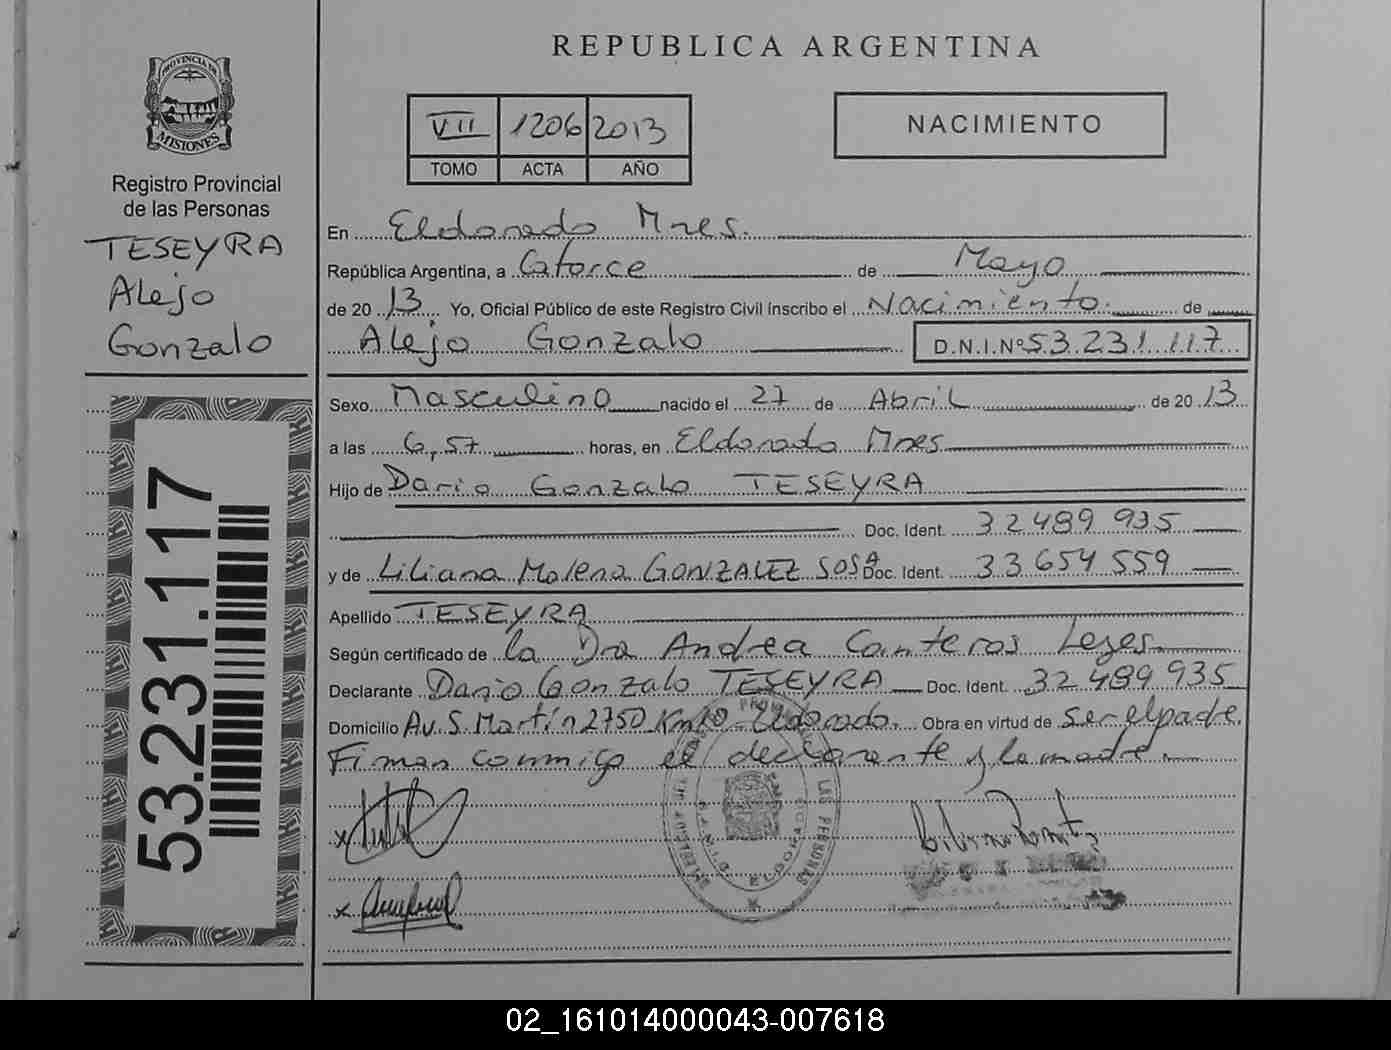 REPUBLICA ARGENTINA
PROVINCIA DE
MISIONES
Registro Provincial
de las Personas
TESEYRA
Alejo
Gonzalo
53.231.117
VII 1206 2013
TOMO ACTA AÑO
NACIMIENTO
En Eldorado Mnes.
República Argentina, a Catorce de Mayo
de 20 13 Yo, Oficial Público de este Registro Civil inscribo el Nacimiento. de
Alejo Gonzalo D.N.I.Nº 53.231.117
Sexo Masculino nacido el 27 de Abril de 20 13
a las 6,57 horas, en Eldorado Mnes
Hijo de Dario Gonzalo TESEYRA
Doc. Ident. 32489935
y de Liliana Malena GONZALEZ SOSA Doc. Ident. 33654559
Apellido TESEYRA
Según certificado de la Dra Andrea Canteros Leyes
Declarante Dario Gonzalo TESEYRA Doc. Ident. 32489935
Domicilio Av. S. Martín 2750 Km10 Eldorado. Obra en virtud de ser el padre.
Firman conmigo el declarante y la madre
LAS PERSONAS
ELDORADO
02_161014000043-007618